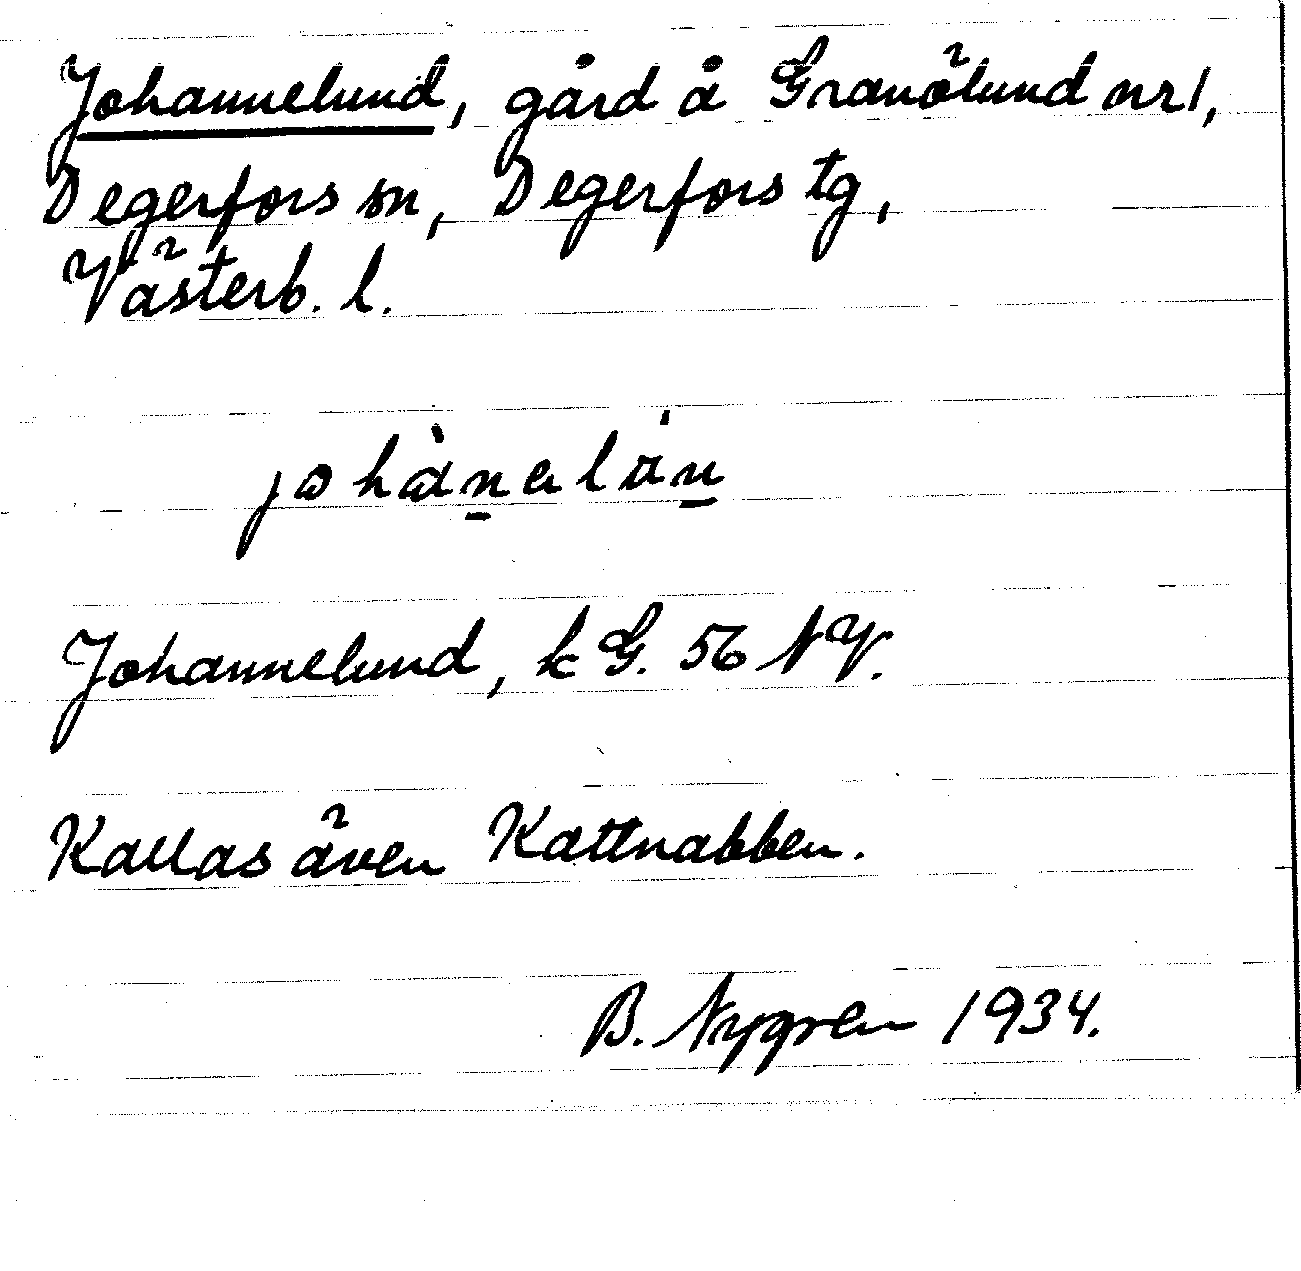 Johannelund, gård å Granölund nr 1,
Degerfors sn, Degerfors tg,
Västerb. l.
Johannelund, k G. 56 NV.
Kallas även Kattnabben.
B. Nygren 1934.